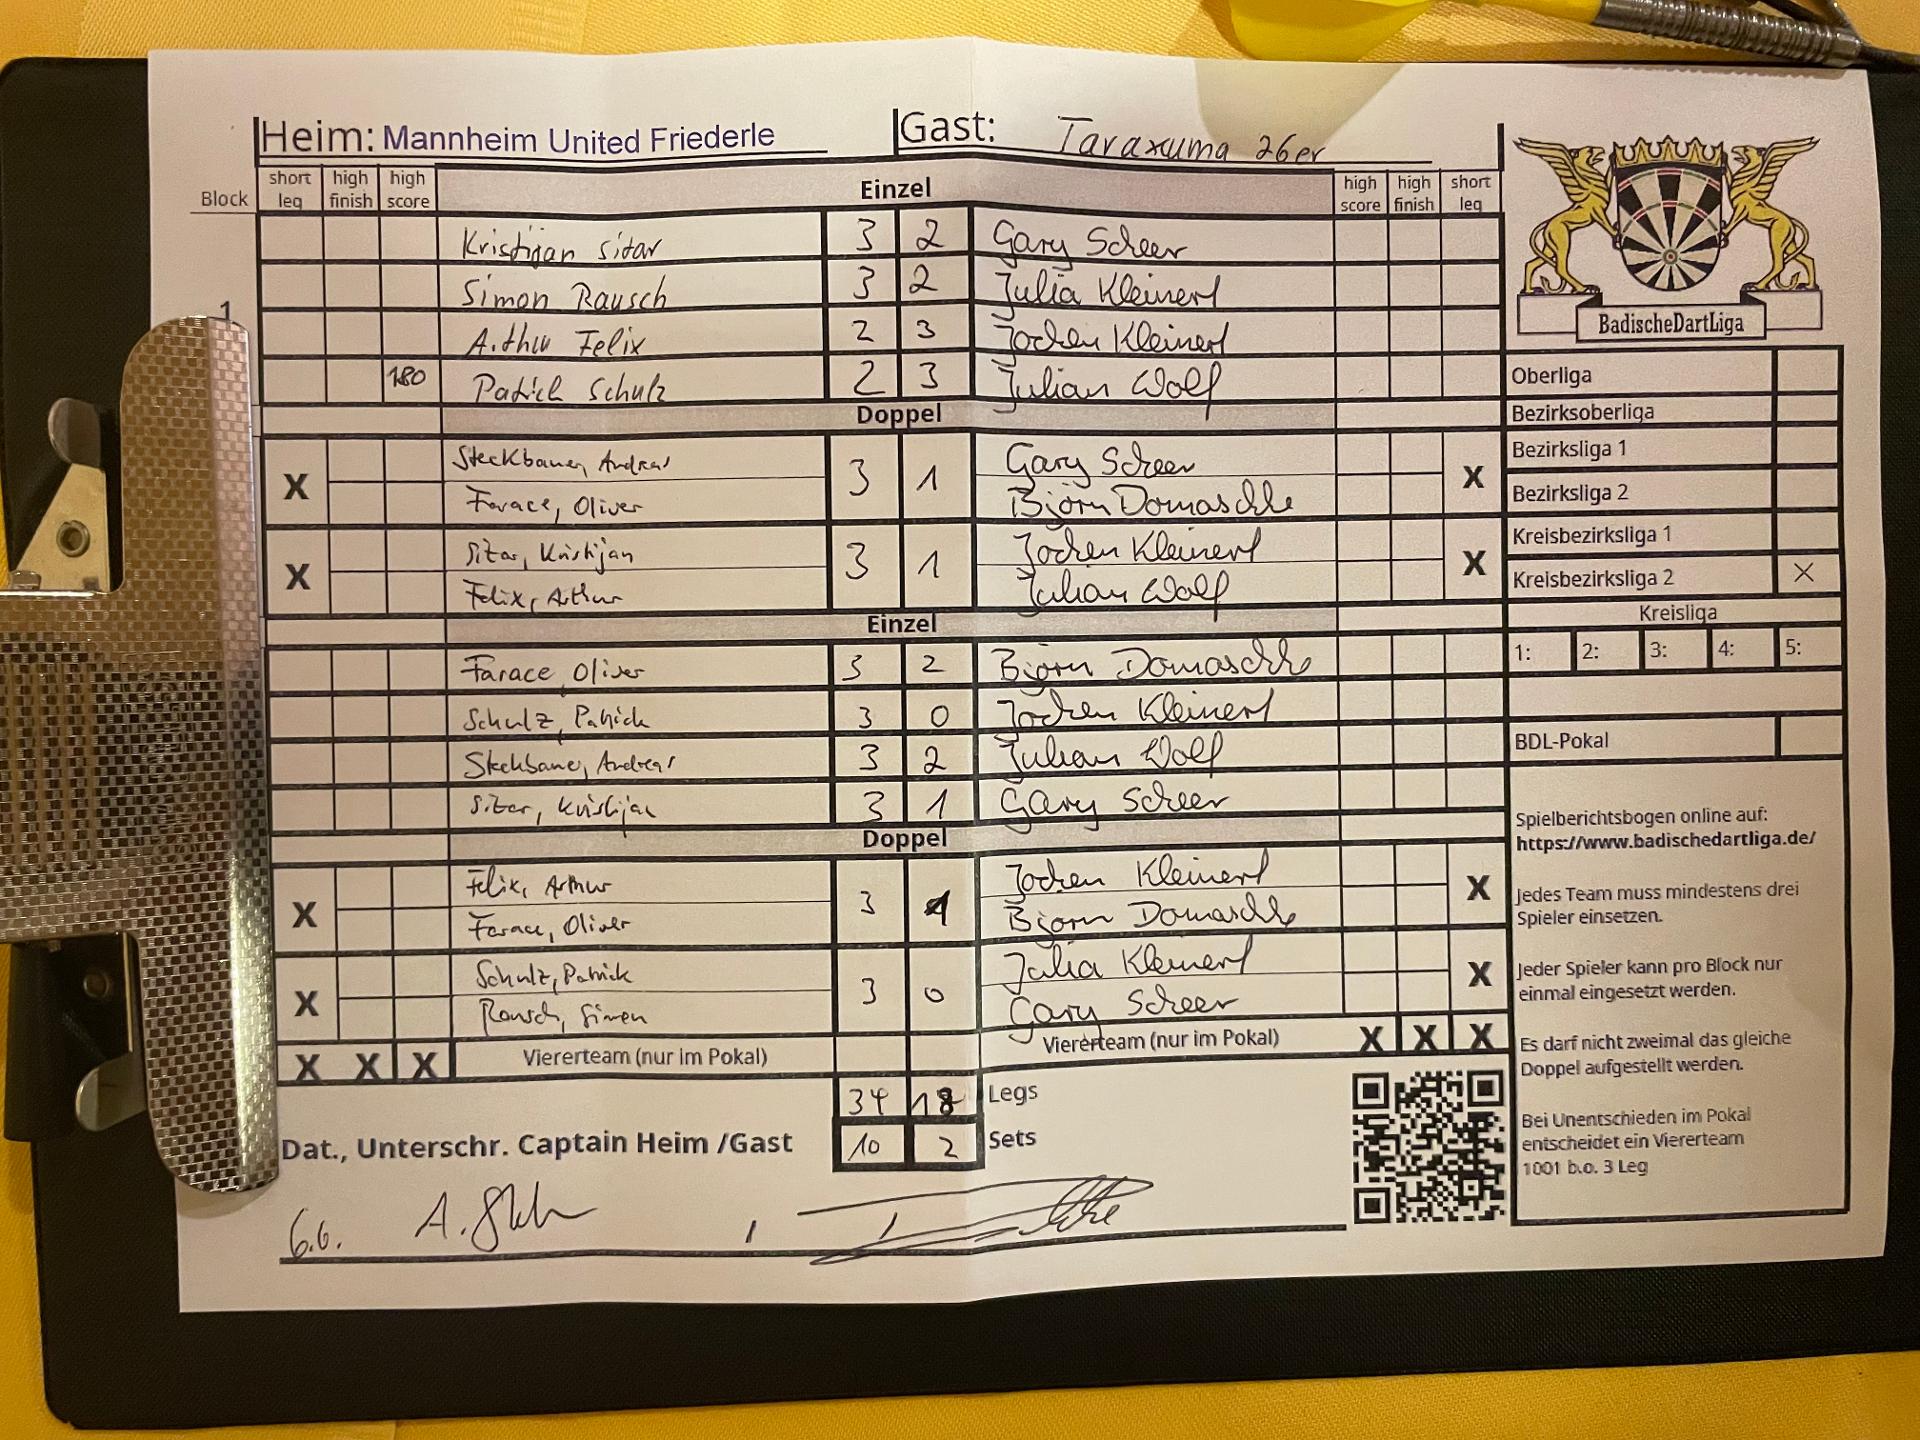 Heim: Mannheim United Friederle Gast: Taraxuma 26er
Block short leg high finish high score Einzel high score high finish short leg
Kristijan Sitar 3 2 Gary Scheer
Simon Rausch 3 2 Julia Kleinert
1
Arthur Felix 2 3 Jochen Kleinert
180 Patrick Schulz 2 3 Julian Wolf
Doppel
X Steckbauer, Andreas 3 1 Gary Scheer X
Farace, Oliver Björn Domaschke
X Sitar, Kristijan 3 1 Jochen Kleinert X
Felix, Arthur Julian Wolf
Einzel
Farace, Oliver 3 2 Björn Domaschke
Schulz, Patrick 3 0 Jochen Kleinert
Steckbauer, Andreas 3 2 Julian Wolf
Sitar, Kristijan 3 1 Gary Scheer
Doppel
X Felix, Arthur 3 1 Jochen Kleinert X
Farace, Oliver Björn Domaschke
X Schulz, Patrick 3 0 Julia Kleinert X
Rausch, Simon Gary Scheer
X X X Viererteam (nur im Pokal) Viererteam (nur im Pokal) X X X
34 18 Legs
Dat., Unterschr. Captain Heim /Gast 10 2 Sets
6.6.
BadischeDartLiga
Oberliga
Bezirksoberliga
Bezirksliga 1
Bezirksliga 2
Kreisbezirksliga 1
Kreisbezirksliga 2 X
Kreisliga
1: 2: 3: 4: 5:
BDL-Pokal
Spielberichtsbogen online auf:
https://www.badischedartliga.de/
Jedes Team muss mindestens drei
Spieler einsetzen.
Jeder Spieler kann pro Block nur
einmal eingesetzt werden.
Es darf nicht zweimal das gleiche
Doppel aufgestellt werden.
Bei Unentschieden im Pokal
entscheidet ein Viererteam
1001 b.o. 3 Leg